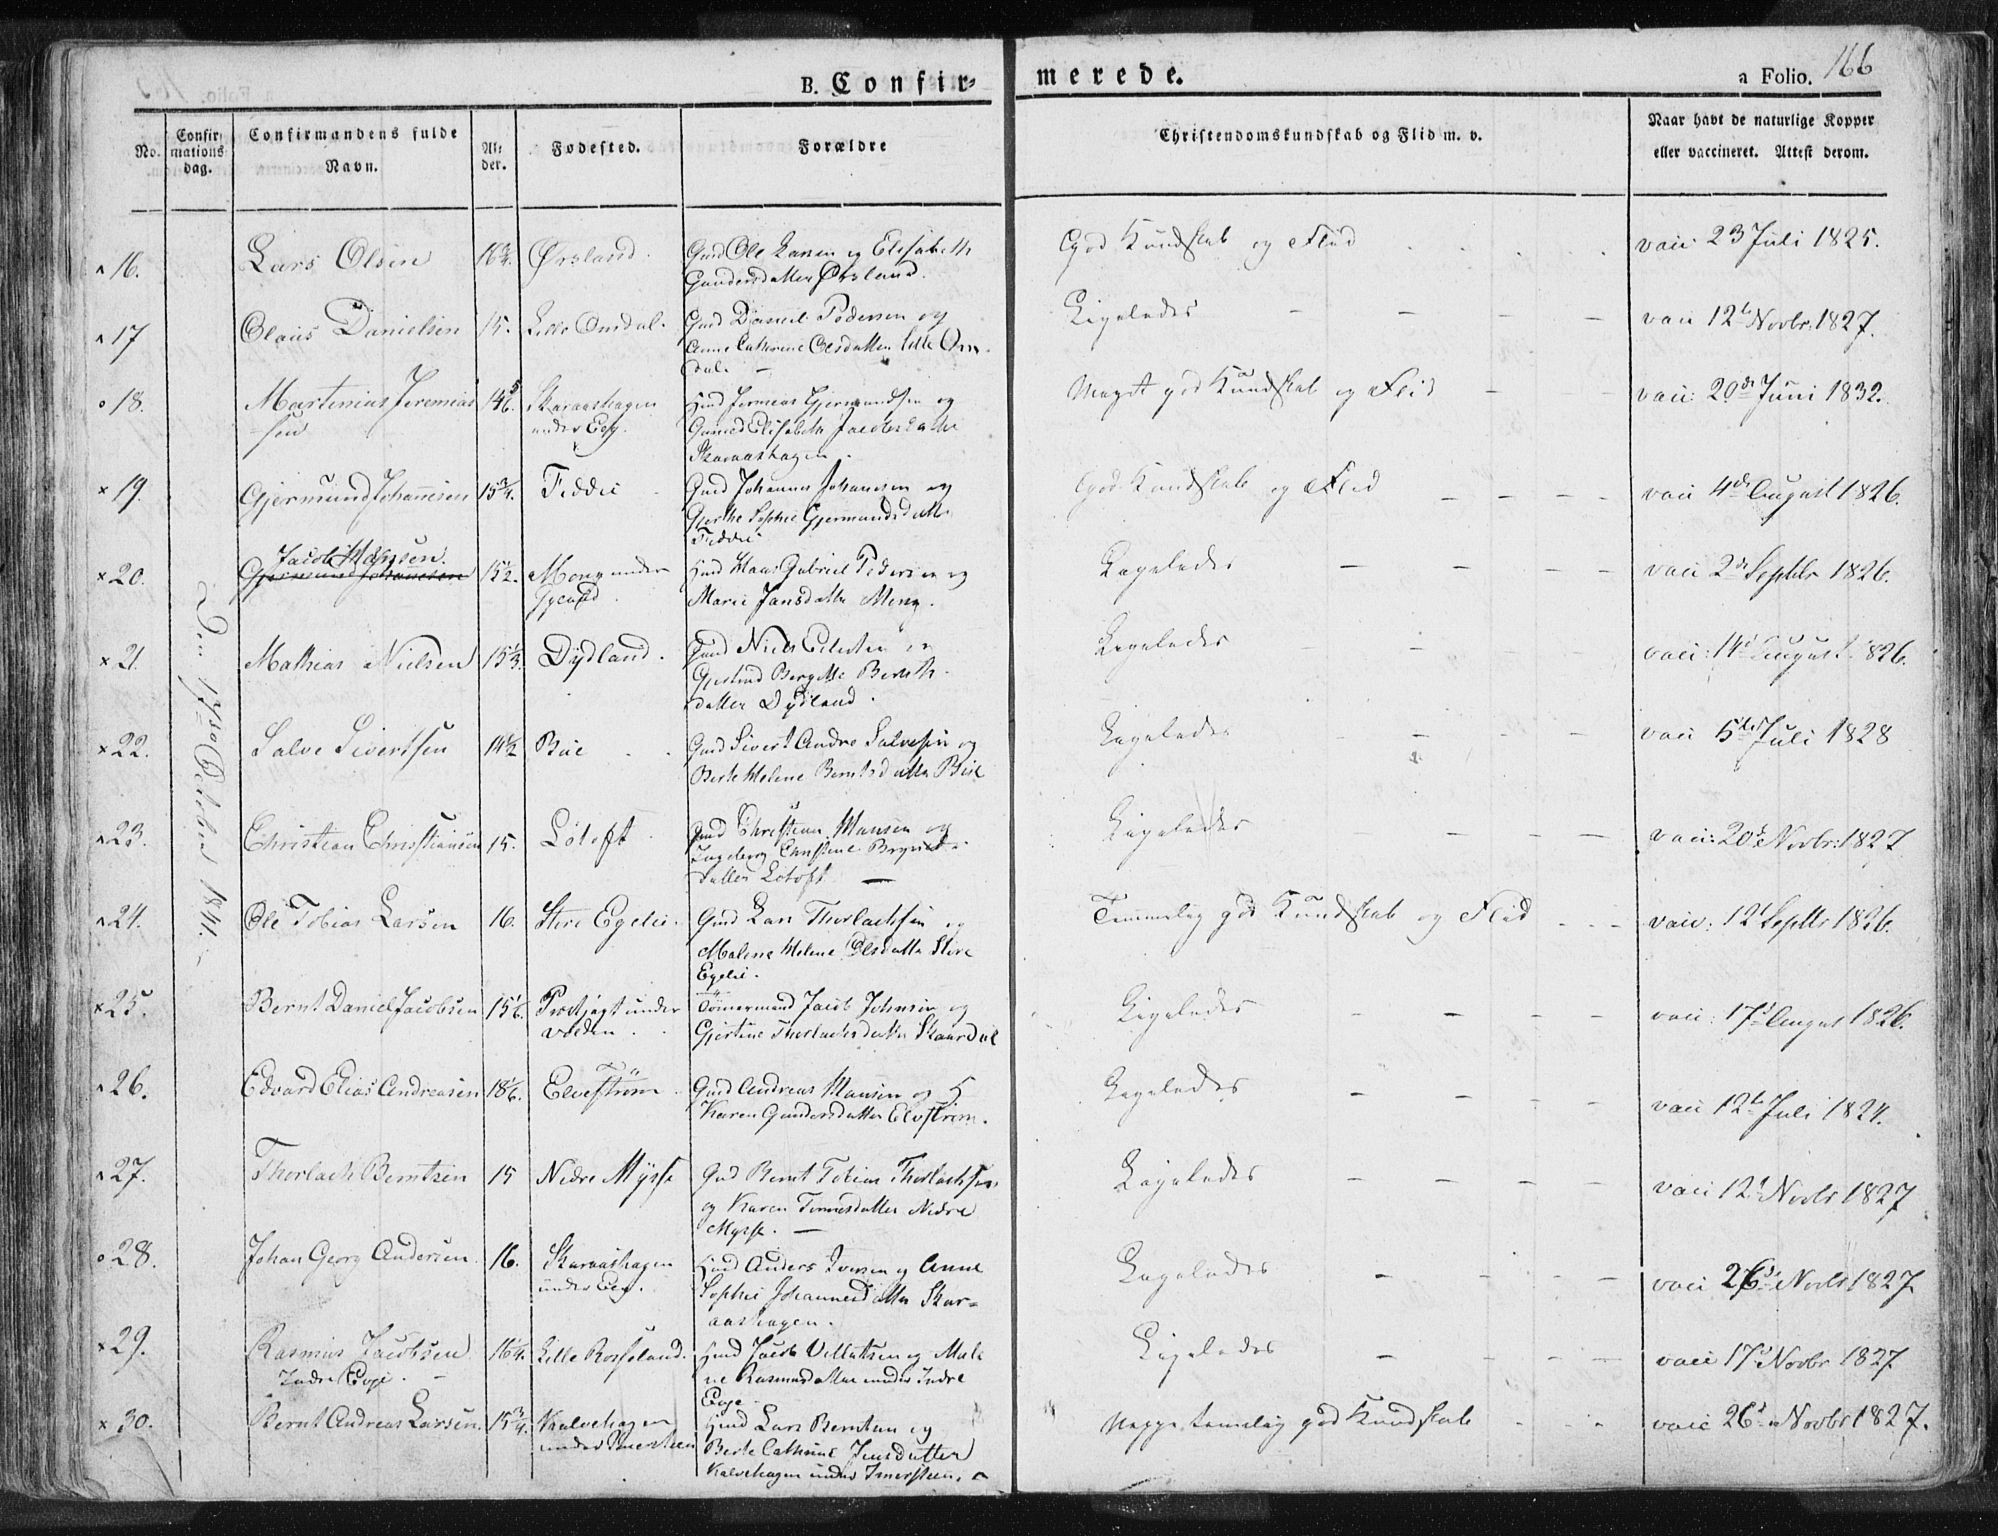 B. Confir-
merede.
a Folio. 166
No.
Confir-
mations
dag.
Confirmandens fulde
Navn.
Al-
der.
Fødested.
Forældre
Christendomskundskab og Flid m. v.
Naar havt de naturlige Kopper
eller vaccineret. Attest derom.
Den 17de October 1841.
16. Lars Olsen 16 3/4. Ørsland. Gmd Ole Larsen og Elisabeth
Gundersdatter Ørsland.
God Kundskab og Flid vacc: 23 Juli 1825.
17 Olaus Danielsen 15. Lille Omdal. Gmd Daniel Pedersen og
Anne Cathrine Olsdatter lille Om-
dal.
Ligeledes vacc 12t Novbr: 1827.
18. Martinius Jeremias- 14 5/6. Skaraashagen Hmd Jermias Gjermundsen og
sen under Eeg. Elisabeth Jacobsdatter
Skaraashagen.
Meget god Kundskab og Flid vacc: 20de Juni 1832.
19. Gjermund Johannesen 15 3/4. Feddie Gmd Johannes Johansen og
Gjerthe Sophie Gjermundsdatter
Feddie
God Kundskab og Flid vacc 4de August 1826.
Jacob Hansen.
20. Gjermund Johannesen 15 1/2. Mong under Hmd Hans Gabriel Pedersen og
Marie Jansdatter Mong.
Ligeledes vacc 2de Septbr 1826.
21. Mathias Nielsen 15 1/3. Dydland. Gmd Niels
Bergitte Bernth-
datter Dydland.
Ligeledes vacc: 14d August 1826.
22. Salve Sivertsen 14 1/2 Bue Gmd Sivert Andr. Salvesen og
Berte Helene Berntsdatter Bue
Ligeledes vacc 5te Juli 1828
23. Christian Christiansen 15. Lotoft Gmd Christian Hansen og
Ingeborg Christine
datter Lotoft
Ligeledes vacc: 20de Novbr: 1827
24. Ole Tobias Larsen 16. Store Egelie. Gmd Lars Thorlachsen og
Malene Helene Olsdatter Store
Egelie.
Temmelig god Kundskab og Flid vacc: 12t Septbr 1826.
25. Bernt Daniel Jacobsen 15 1/6. under Tømermand Jacob Johnsen og
Gjertine Thorlachsdatter Skaardal
Ligeledes vacc: 17d August 1826.
26. Edvard Elias Andreasen 18 1/6. Elvestrøm Gmd Andreas Hansen og
Karen Gundersdatter Elvstrøm.
Ligeledes vacc 12te Juli 1824.
27. Thorlach Berntsen 15 Nedre Mysse Gmd Bernt Tobias Thorlachsen
og Karen Tønnesdatter Nedre
Mysse.
Ligeledes vacc 12t Novbr 1827
28. Johan Georg Andersen 16. Skaraashagen Hmd Anders Iversen og Anne
under Eeg. Sophie Johannesdatter Skar-
aashagen.
Ligeledes vacc 26de Novbr 1827.
29. Rasmus Jacobsen 16 1/4. Lille Rosseland. Hmd Jacob Villatsen og Male-
Indre Eeje. ne Rasmusdatter under Indre
Eeje.
Ligeledes vacc 17d Novbr 1827
30. Bernt Andreas Larsen 15 3/4. Kalvehagen Hmd Lars Berntsen og
under Berte Cathrine Jensdatter
Kalvehagen under
Neppe temelig god Kundskab vacc 26d Novbr 1827.